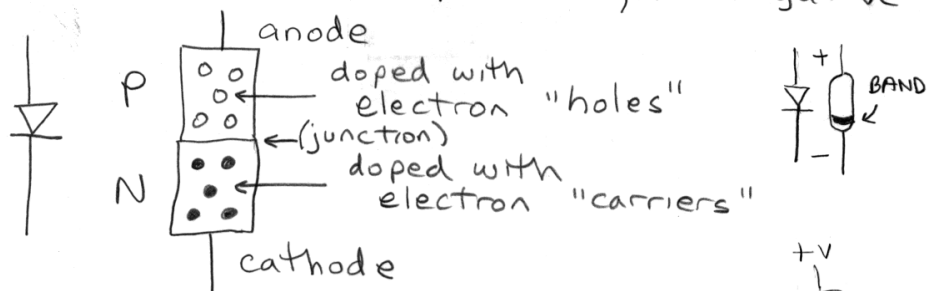 anode
P
doped with
electron "holes"
(junction)
N
doped with
electron "carriers"
cathode
+
BAND
–
+V